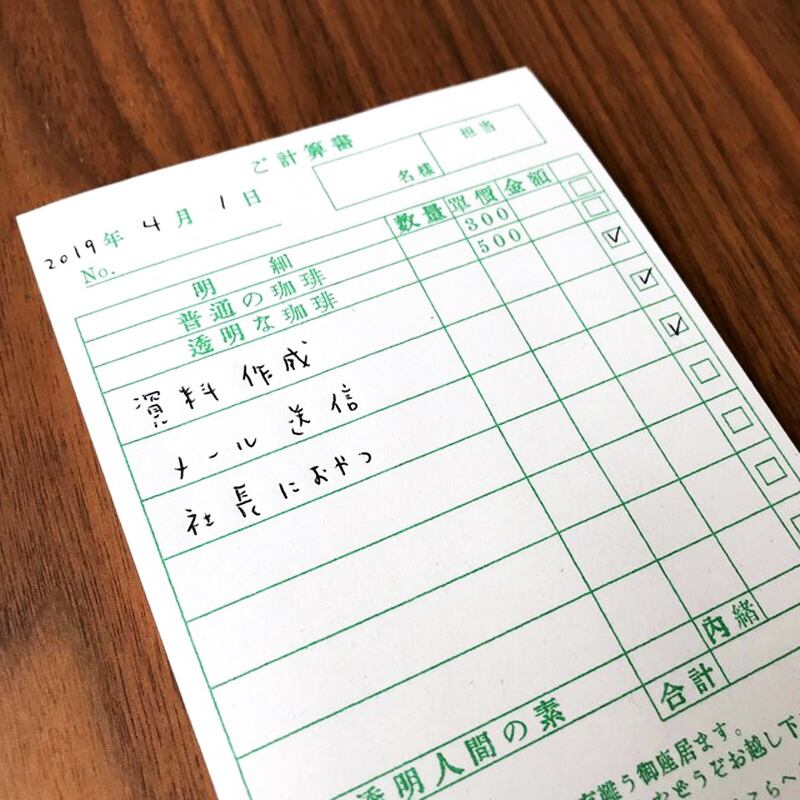 ご計算書
担当
名様
2019年 4月 1日
No.
明細 数量 單價 金額
普通の珈琲 300
透明な珈琲 500
資料作成
メール送信
社長におやつ
内緒
合計
透明人間の素
難う御座居ます。
どうぞお越し下